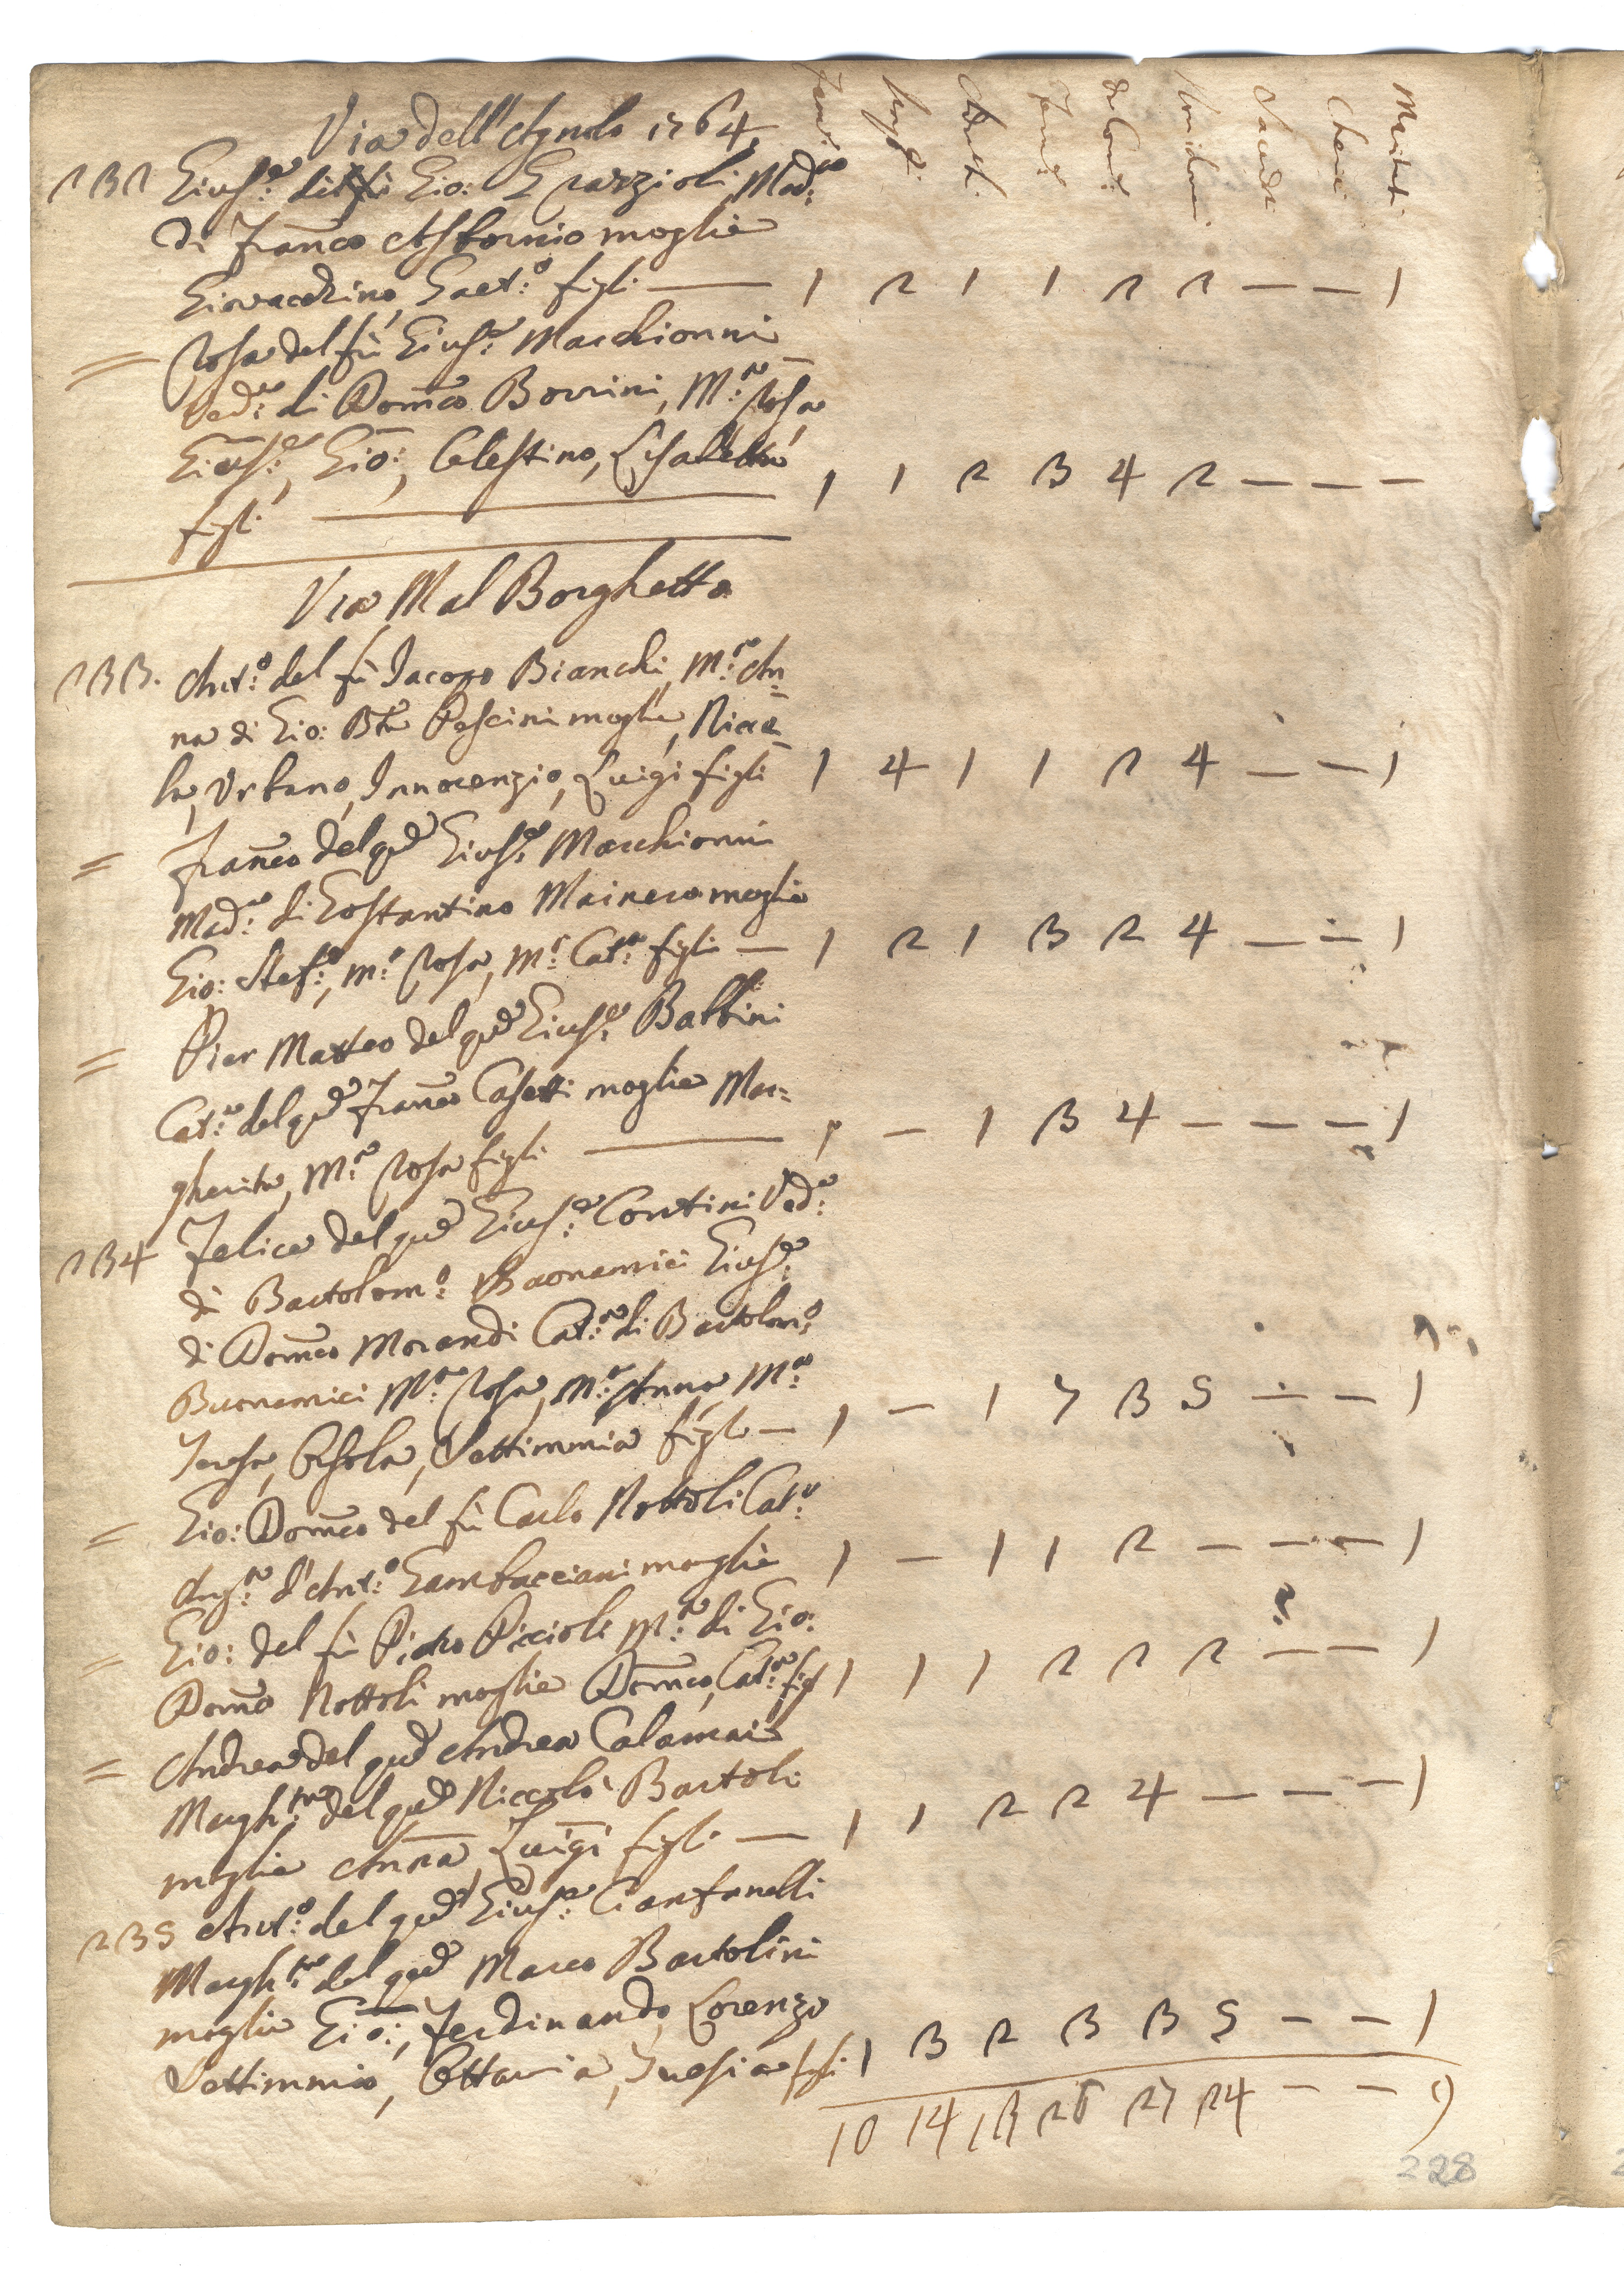 Via dell'Agnolo 1764
Fami:
Masch:
Adulti
Femi:
da Comu:
Sacerdoti
Cherici
Matrim:
232 Gius:e di Gio: Grazzioli Mad:na
di Fran:co moglie
Giovacchino, Gaet:o figli — 1 2 1 1 2 2 — — 1
= Rosa del fù Gius:e Marchionni
Ved:a di Dom:co Borrini, M:a Rosa,
Gius:e, Gio:, Celestino, Elisabetta
figli — 1 1 2 3 4 2 — — —
Via Mal Borghetto
233. Ant:o del fù Jacopo Bianchi, M:a An=
na di Gio: Bta Pescini moglie, Nicco=
la, Urbano, Innocenzio, Luigi figli 1 4 1 1 2 4 — — 1
= Fran:co del qd Gius:e Marchionni
Mad:na di Costantino moglie
Gio: Stef:o, M:a Rosa, M:a Cat:a figli — 1 2 1 3 2 4 — — 1
= Pier Matteo del qd Gius:e Balbini
Cat:a del qd Fran:co Casetti moglie Mar=
gherita, M:a Rosa figli — 1 — 1 3 4 — — — 1
234 Felice del qd Gius:e Contini Ved:a
di Bartolom:o Buonamici Gius:e
di Dom:co Morandi Cat:a di Bartolom:o
Buonamici M:a Rosa, M:a Anna, M:a
Teresa, Orsola, Settimmia figli — 1 — 1 7 3 5 — — 1
= Gio: Dom:co del fù Carlo Nottoli Cat:a
Ang:a d'Ant:o Gambacciani moglie 1 — 1 1 2 — — — 1
= Gio: del fù Pietro Piccioli M:a di Gio:
Dom:co Nottoli moglie Dom:co, Cat:a figl 1 1 1 2 2 2 — — 1
= Andrea del qd Andrea Calamai
Margh:ta del qd Niccolò Bartoli
moglie Anna, Luigi figli — 1 1 2 2 4 — — — 1
235 Ant:o del qd Gius:e Cianfanelli
Margh:ta del qd Marco Bartolini
moglie Gio:, Ferdinando, Lorenzo
Settimmio, Ottavia, figli 1 3 2 3 3 5 — — 1
10 14 13 26 27 24 — — 9
228